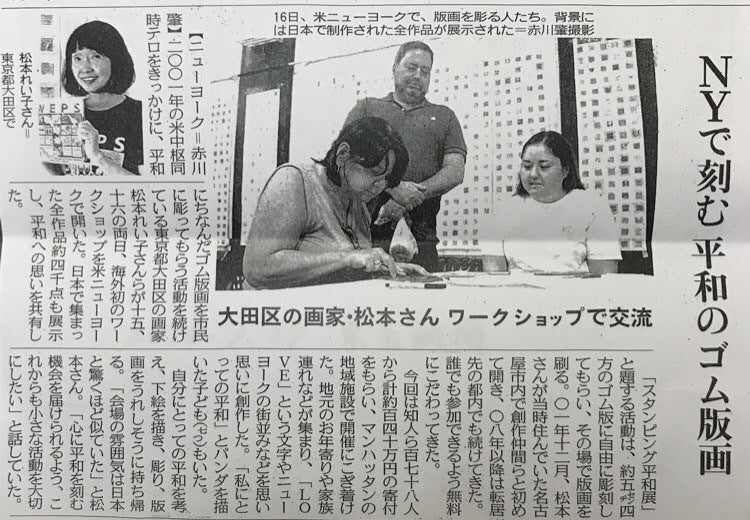 NYで刻む 平和のゴム版画
16日、米ニューヨークで、版画を彫る人たち。背景に
は日本で制作された全作品が展示された＝赤川肇撮影
大田区の画家・松本さん ワークショップで交流
松本れい子さん＝
東京都大田区で
【ニューヨーク＝赤川
肇】二〇〇一年の米中枢同
時テロをきっかけに、平和
にちなんだゴム版画を市民
に彫ってもらう活動を続け
ている東京都大田区の画家
松本れい子さんらが十五、
十六の両日、海外初のワー
クショップを米ニューヨー
クで開いた。日本で集まっ
た全作品約四千点も展示
し、平和への思いを共有し
た。
「スタンピング平和展」
と題する活動は、約五㌢四
方のゴム版に自由に彫刻し
てもらい、その場で版画を
刷る。〇一年十二月、松本
さんが当時住んでいた名古
屋市内で創作仲間らと初め
て開き、〇八年以降は転居
先の都内でも続けてきた。
誰でも参加できるよう無料
にこだわってきた。
今回は知人ら百七十八人
から計約百四十万円の寄付
をもらい、マンハッタンの
地域施設で開催にこぎ着け
た。地元のお年寄りや家族
連れなどが集まり、「LO
VE」という文字やニュー
ヨークの街並みなどを思い
思いに創作した。「私にと
っての平和」とパンダを描
いた子ども(七つ)もいた。
自分にとっての平和を考
え、下絵を描き、彫り、版
画をうれしそうに持ち帰
る。「会場の雰囲気は日本
と驚くほど似ていた」と松
本さん。「心に平和を刻む
機会を届けられるよう、こ
れからも小さな活動を大切
にしたい」と話していた。